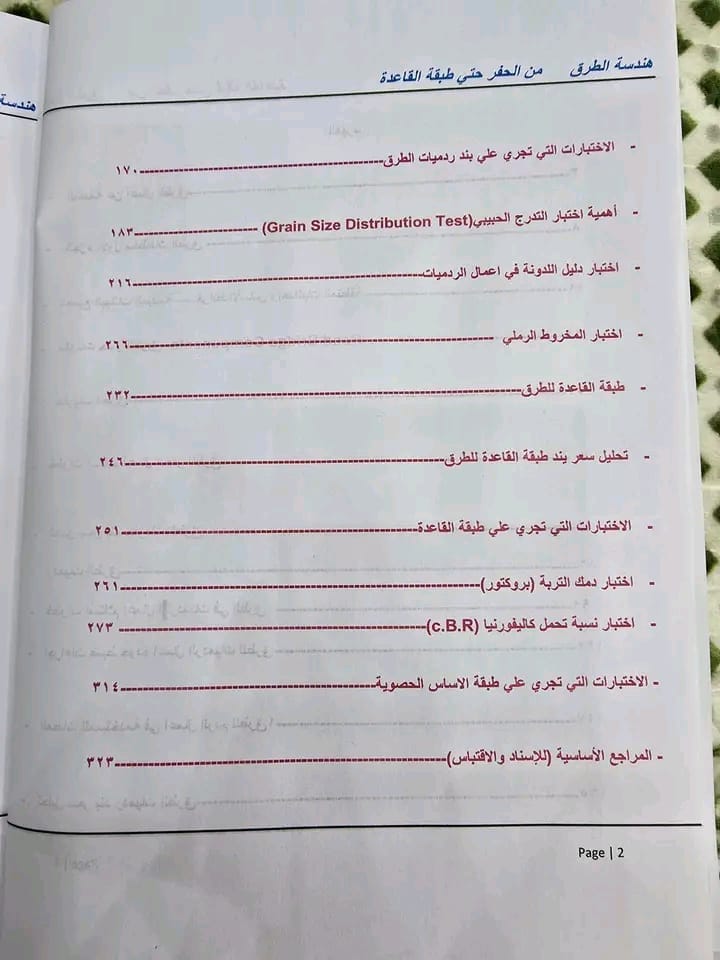 هندسة الطرق من الحفر حتي طبقة القاعدة
- الاختبارات التي تجري علي بند ردميات الطرق ١٧٠
- أهمية اختبار التدرج الحبيبي(Grain Size Distribution Test) ١٨٣
- اختبار دليل اللدونة في اعمال الردميات ٢١٦
- اختبار المخروط الرملي ٢٦٦
- طبقة القاعدة للطرق ٢٣٢
- تحليل سعر يند طبقة القاعدة للطرق ٢٤٦
- الاختبارات التي تجري علي طبقة القاعدة ٢٥١
- اختبار دمك التربة (بروكتور) ٢٦١
- اختبار نسبة تحمل كاليفورنيا (c.B.R) ٢٧٣
- الاختبارات التي تجري علي طبقة الاساس الحصوية ٣١٤
- المراجع الأساسية (للإسناد والاقتباس) ٣٢٣
Page | 2
هندسة